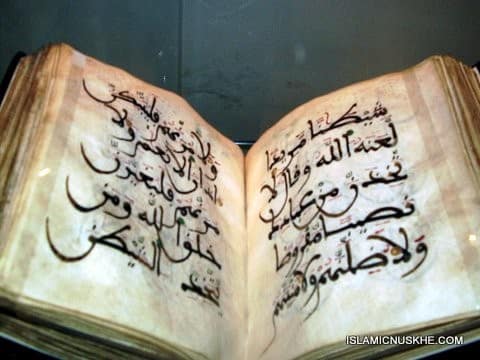 شيطنا مريدا
لعنه الله وقال لا
تخذن من عبادك
نصيبا مفروضا
ولاضلنهم ولامنينهم
ولامرنهم فليبتكن
اذان الانعم ولا
مرنهم فليغيرن
خلق الله ومن
يتخذ الشيطن
ISLAMICNUSKHE.COM